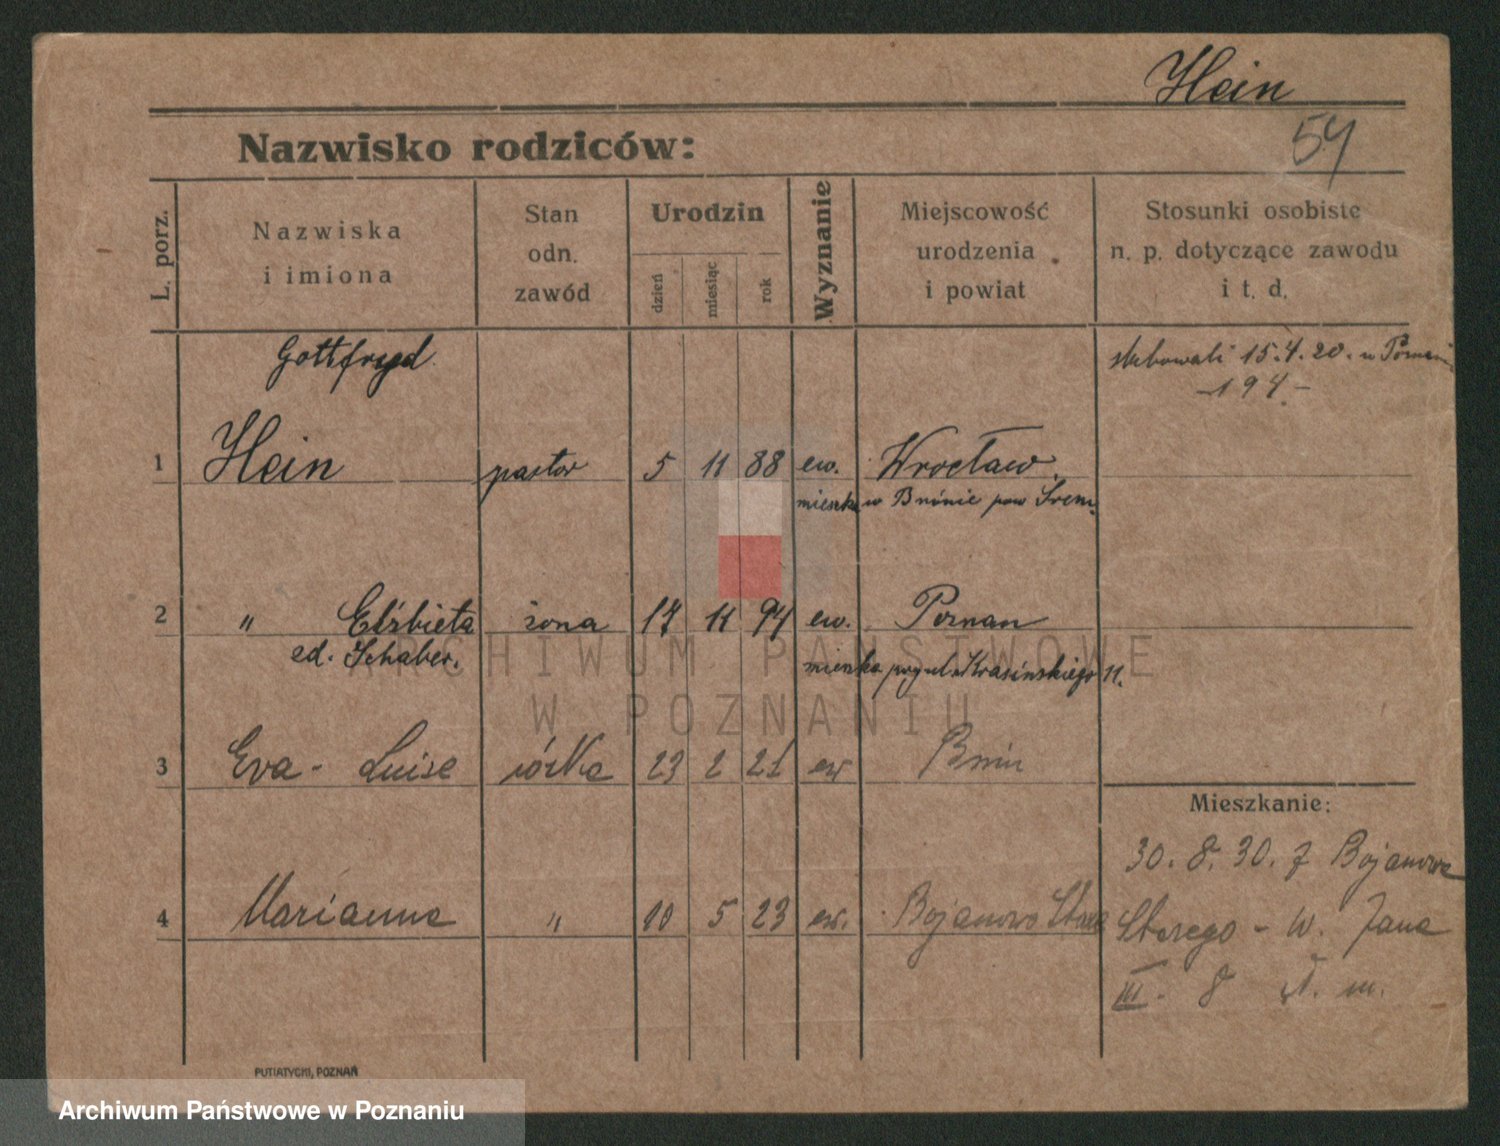 Hein
54
Nazwisko rodziców:
L. porz.
Nazwiska
i imiona
Stan
odn.
zawód
Urodzin
dzień
miesiąc
rok
Wyznanie
Miejscowość
urodzenia
i powiat
Stosunki osobiste
n. p. dotyczące zawodu
i t. d.
Gottfryd
ślubowali 15.4.20. w Poznaniu
-194-
1 Hein pastor 5 11 88 ew. Wrocław
mieszka w Bninie pow Śrem.
2 " Elżbieta żona 17 11 94 ew. Poznan
Schaber.
mieszka przy ul. Krasińskiego 11.
3 Eva - Luise córka 23 2 21 ew Bnin
Mieszkanie:
30. 8. 30. z Bojanowa
4 Marianna " 10 5 23 ew. Bojanowo Stare
Starego - W. Jana
III - 8 m.
PUTIATYCKI, POZNAŃ
ARCHIWUM PAŃSTWOWE
W POZNANIU
Archiwum Państwowe w Poznaniu